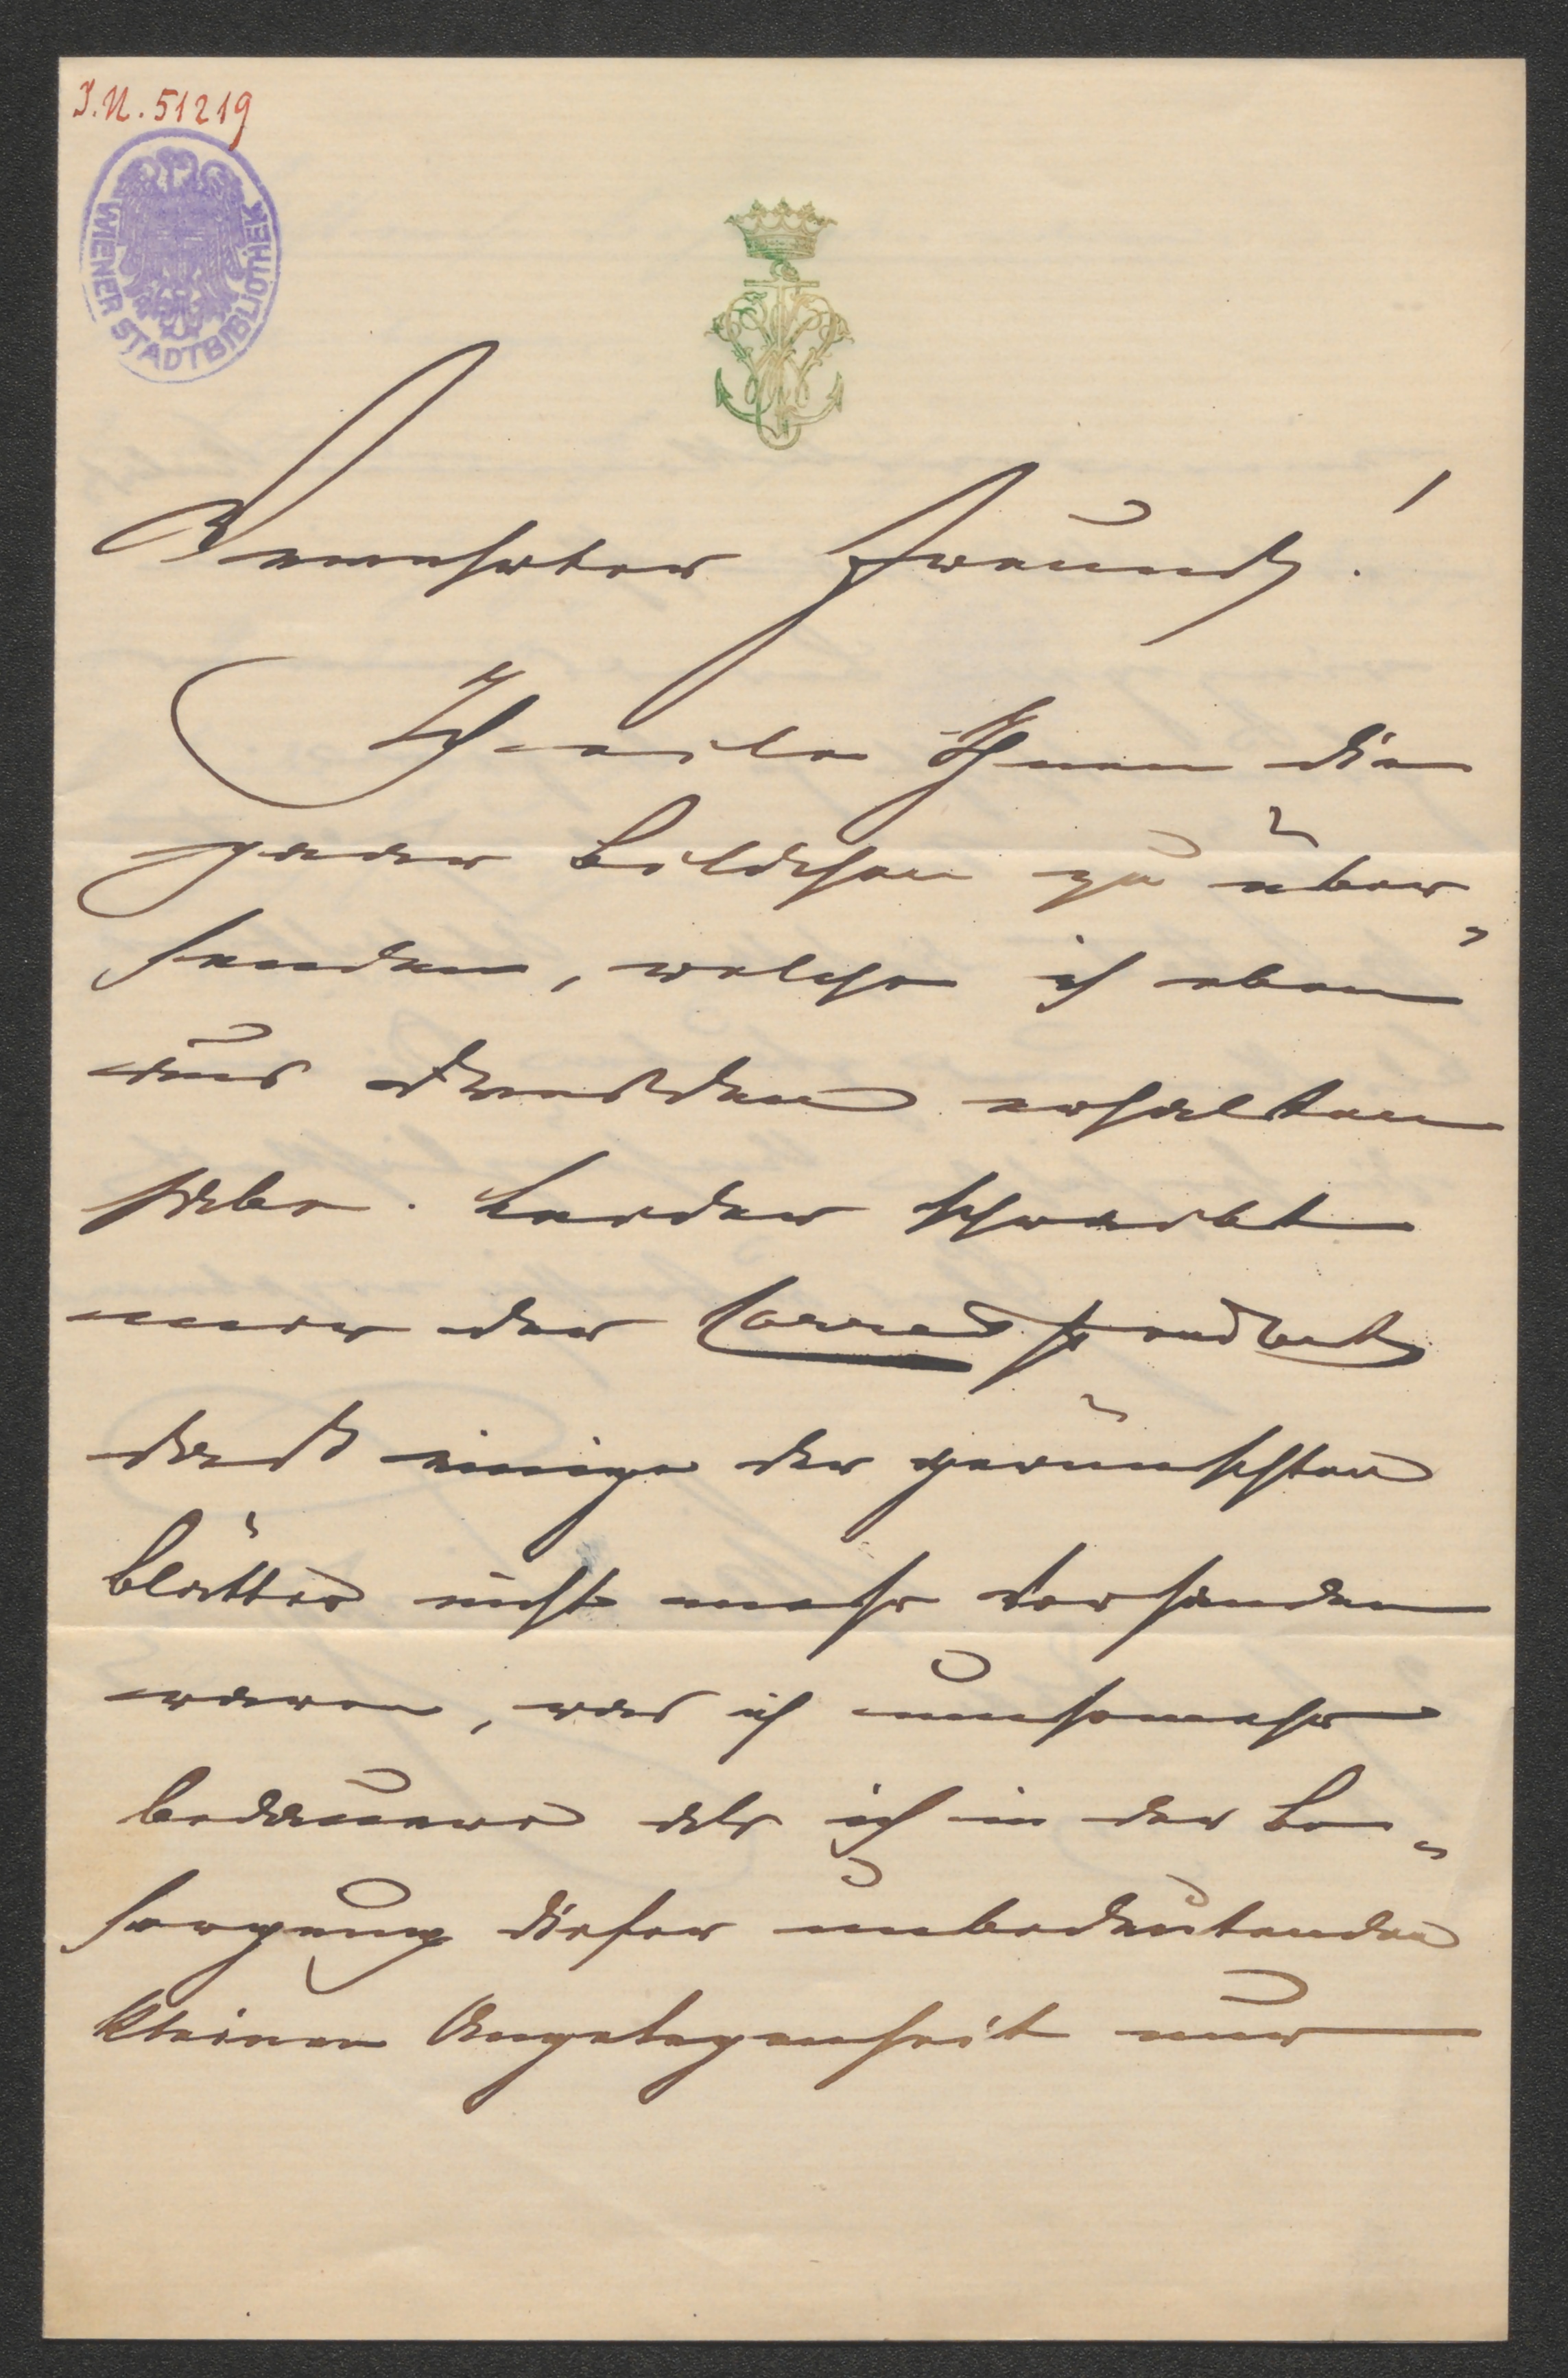 I.N. 51219
WIENER STADTBIBLIOTHEK
Verehrter Freund!
Ich eile Ihnen die
paar Bildchen zu über„
senden, welche ich eben
aus Dresden erhalten
habe. Leider schreibt
mir der Correspondent
daß einige der gewünschten
Blätter nicht mehr vorhanden
waren, was ich umsomehr
bedauere als ich in der Be„
sorgung dieser unbedeutenden
kleinen Angelegenheit nur